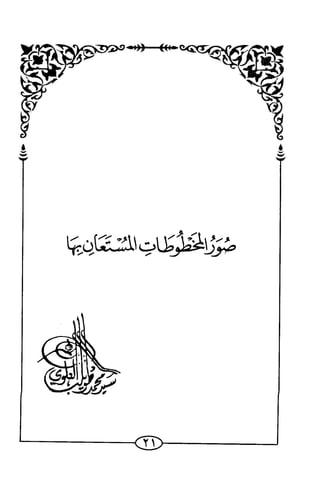 صُوَرُ المَخْطُوطَاتِ المُسْتَعَانِ بِهَا
سيد محمد
العلوي
٢١